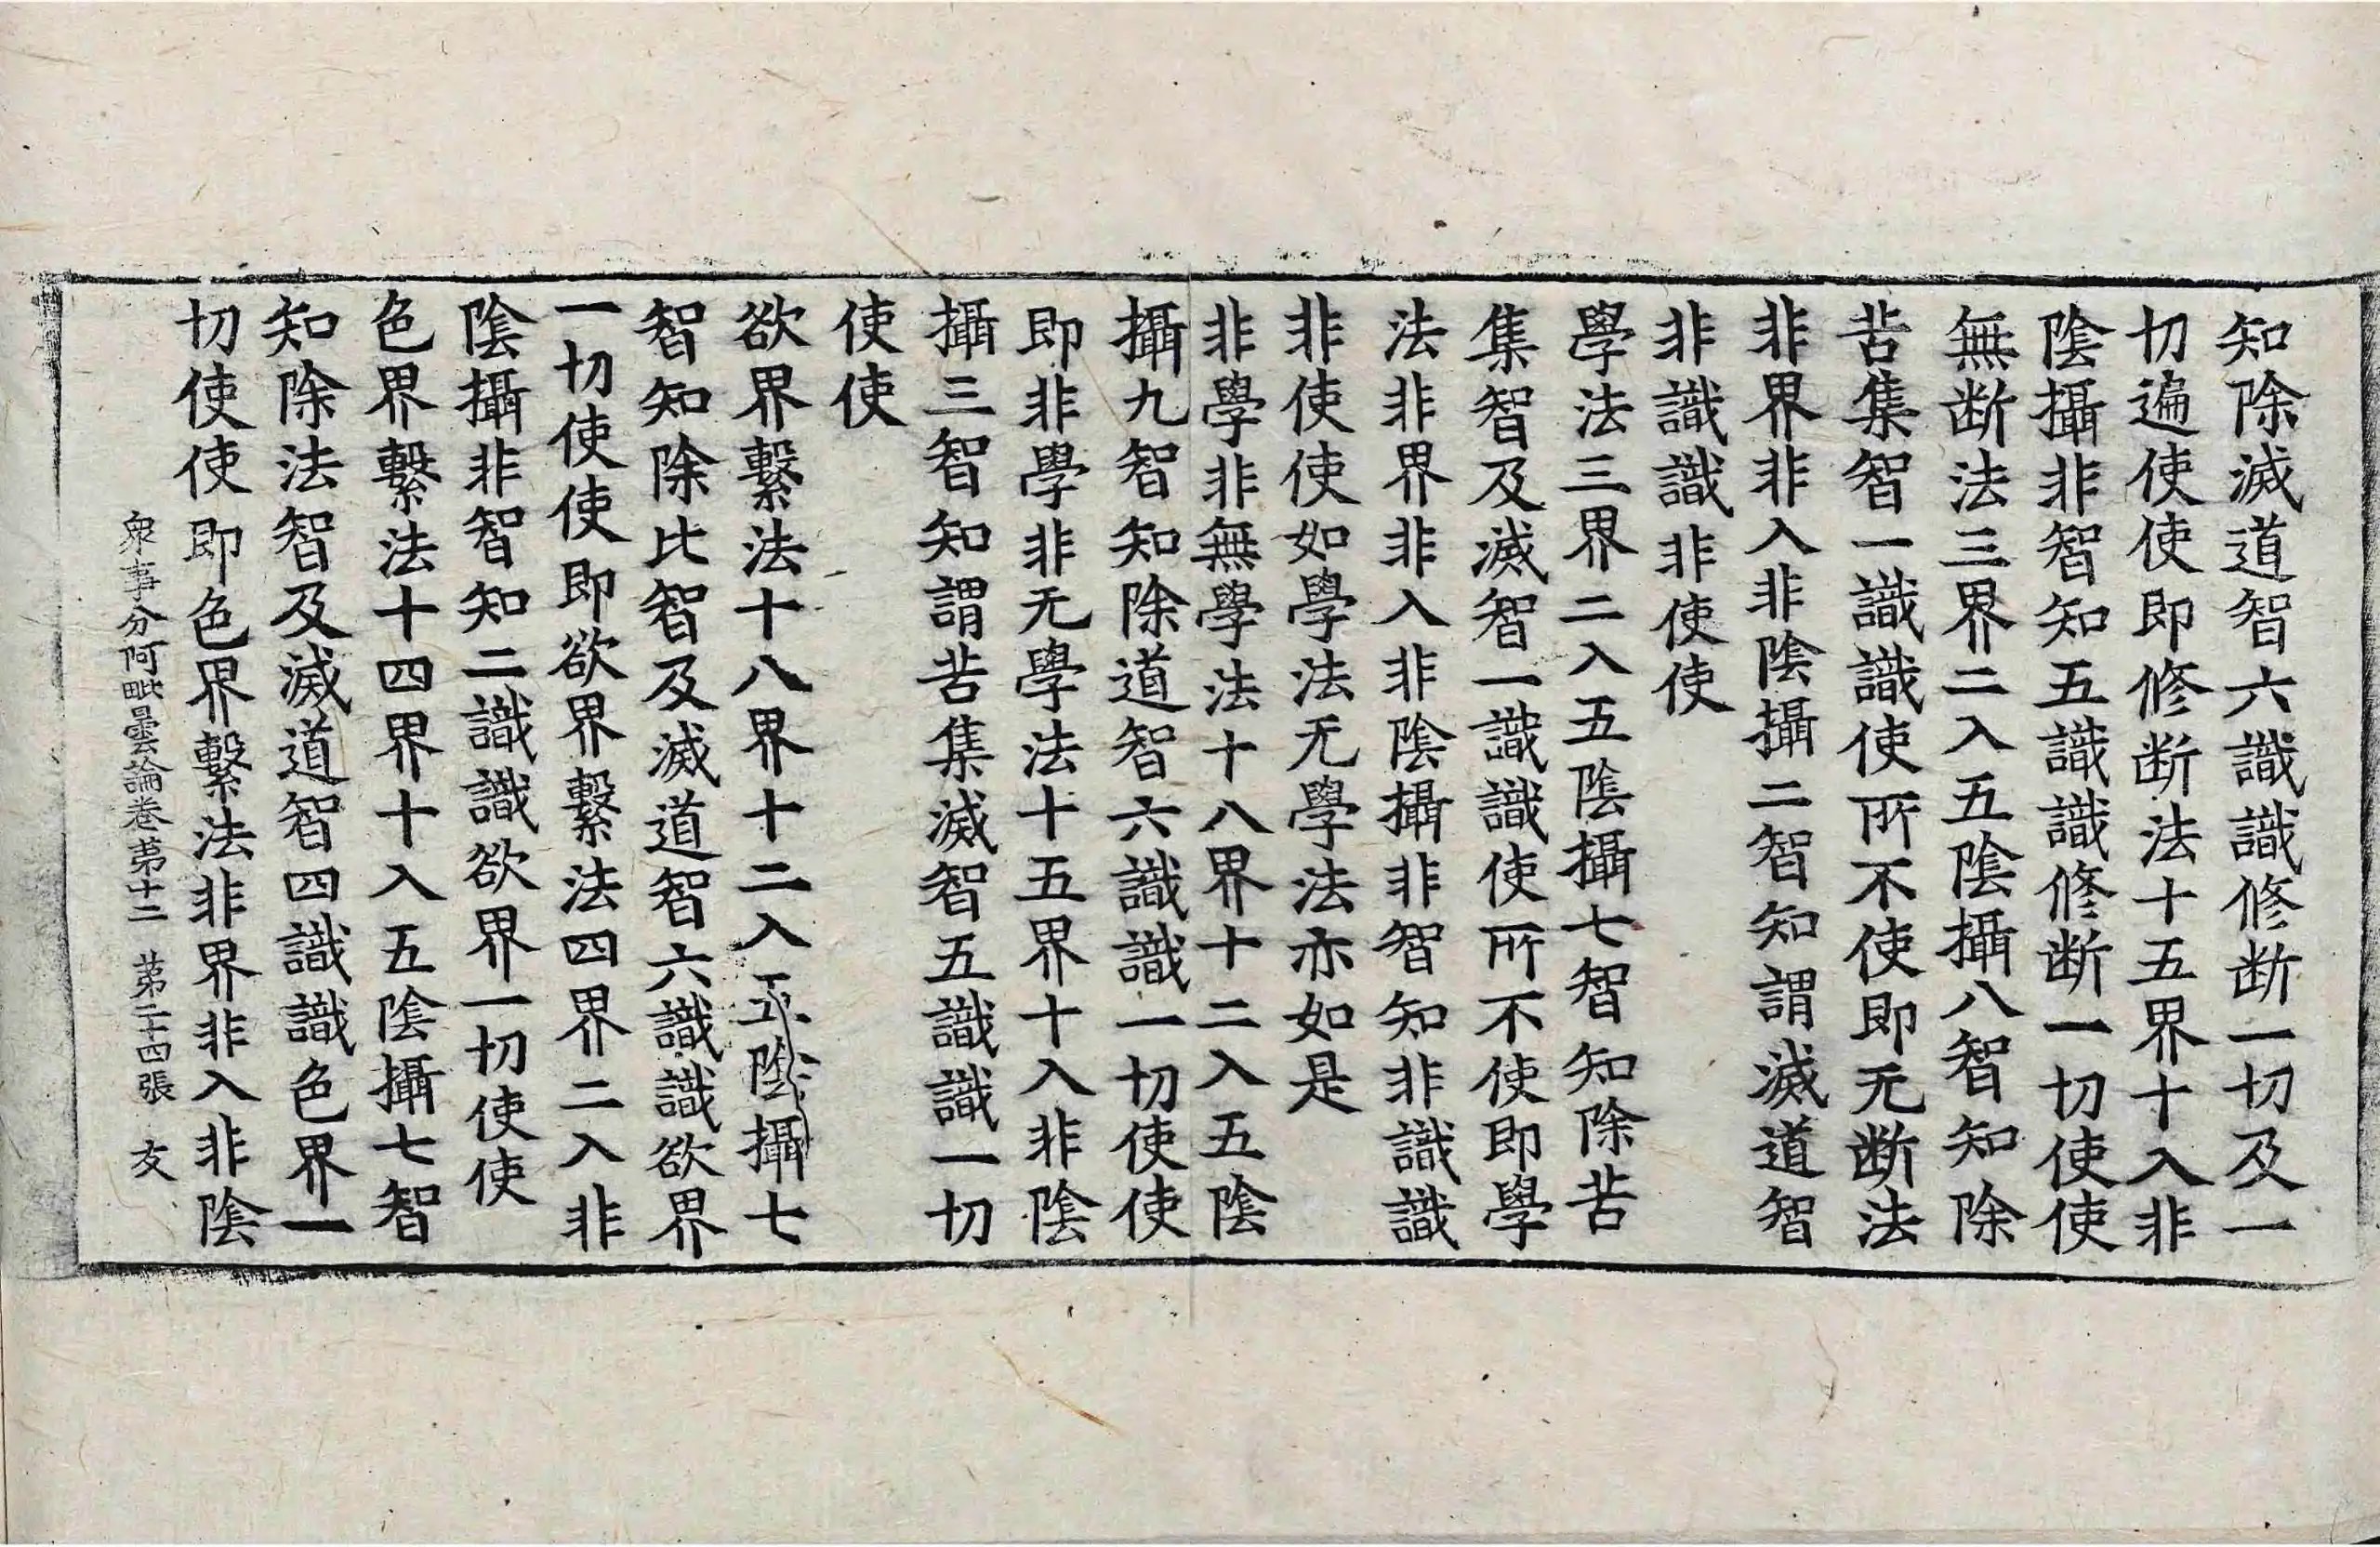 知除滅道智六識識修断一切及一
切遍使使即修断法十五界十入非
陰攝非智知五識識修断一切使使
無断法三界二入五陰攝八智知除
苦集智一識識使所不使即无断法
非界非入非陰攝二智知謂滅道智
非識識非使使
學法三界二入五陰攝七智知除苦
集智及滅智一識識使所不使即學
法非界非入非陰攝非智知非識識
非使使如學法无學法亦如是
非學非無學法十八界十二入五陰
攝九智知除道智六識識一切使使
即非學非无學法十五界十入非陰
攝三智知謂苦集滅智五識識一切
使使
欲界繫法十八界十二入五陰攝七
智知除比智及滅道智六識識欲界
一切使使即欲界繫法四界二入非
陰攝非智知二識識欲界一切使使
色界繫法十四界十入五陰攝七智
知除法智及滅道智四識識色界一
切使使即色界繫法非界非入非陰
衆事分阿毗曇論卷苐十二 苐二十四張 友